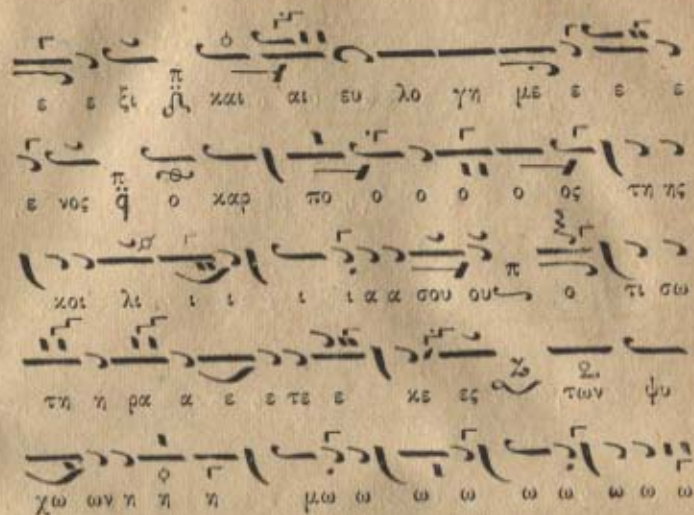 ε ε ξι π και αι ευ λο γη με ε ε ε
ε νος π ο καρ πο ο ο ο ο ος τη ης
κοι λι ι ι ι ι α α σου ου π ο τι σω
τη η ρα α ε ε τε ε κε ες των ψυ
χω ων η η η μω ω ω ω ω ω ω ω ω